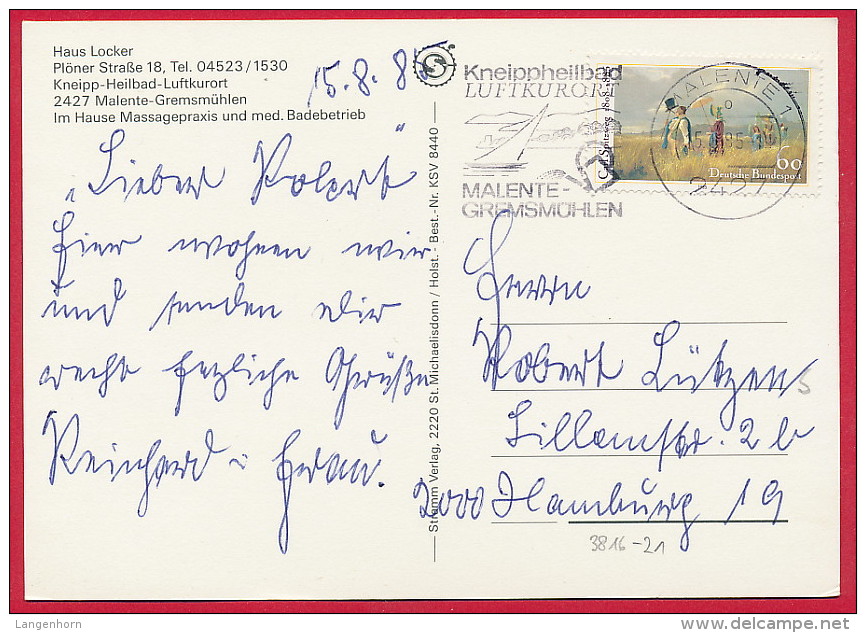 Haus Locker
Plöner Straße 18, Tel. 04523/1530
Kneipp-Heilbad-Luftkurort
2427 Malente-Gremsmühlen
Im Hause Massagepraxis und med. Badebetrieb
15.8.85
"Lieber Robert"
Hier wohnen wir
und senden Dir
recht herzliche Grüße
Reinhard u Frau.
Stramm Verlag, 2220 St. Michaelisdonn / Holst. - Best.-Nr. KSV 8440
Kneippheilbad
LUFTKURORT
MALENTE-
GREMSMÜHLEN
Carl Spitzweg 1808-1885
60
Deutsche Bundespost
MALENTE 1
2427
Herrn
Robert Lützens
2 b
2000 Hamburg 19
3816-21
Langenhorn
delcampe.net